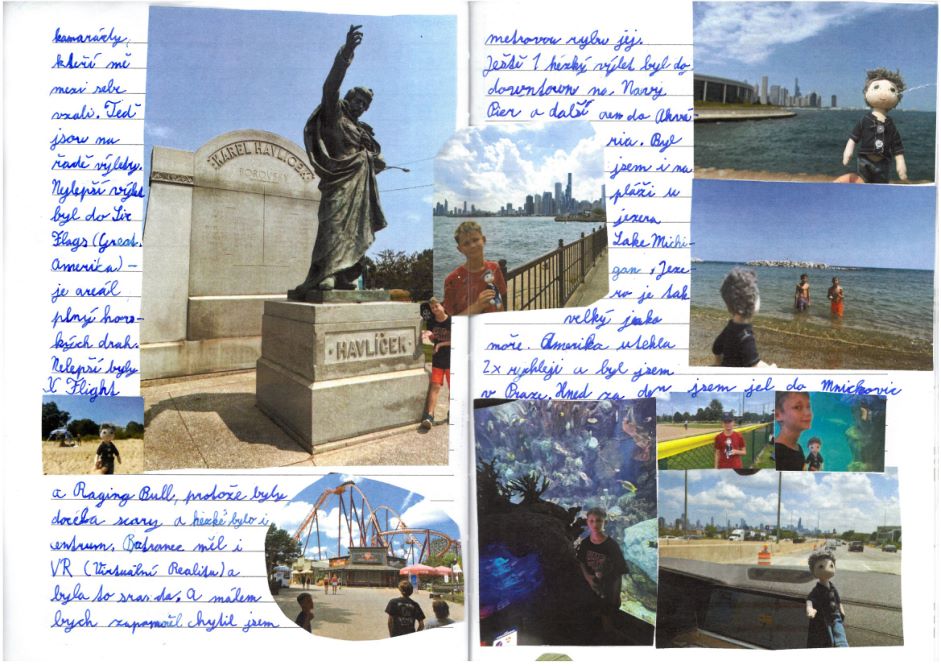 kamarády,
kteří mě
mezi sebe
vzali. Teď
jsou na
řadě výlety.
Nejlepší výlet
byl do Six
Flags (Great
Amerika) -
je areál
plný hors-
kých drah.
Nelepší byly
X Flight
KAREL HAVLÍČEK
BOROVSKÝ
HAVLÍČEK
a Raging Bull, protože byly
docéka scary a hézké bylo i
centrum. Bratranec měl i
VR (Virtuální Realitu) a
byla to sranda. A málem
bych zapomněl chytil jsem
metrovou rybu jej.
Ještě 1 hézký výlet byl do
downtown na Navy
Pier a další sem do Akvá-
ria. Byl
jsem i na
pláži u
jezera
Lake Michi-
gan. Jeze-
ro je tak
velký jako
moře. Amerika utekla
2x rychleji a byl jsem
v Praze. Hned za den jsem jel do Mnichovic